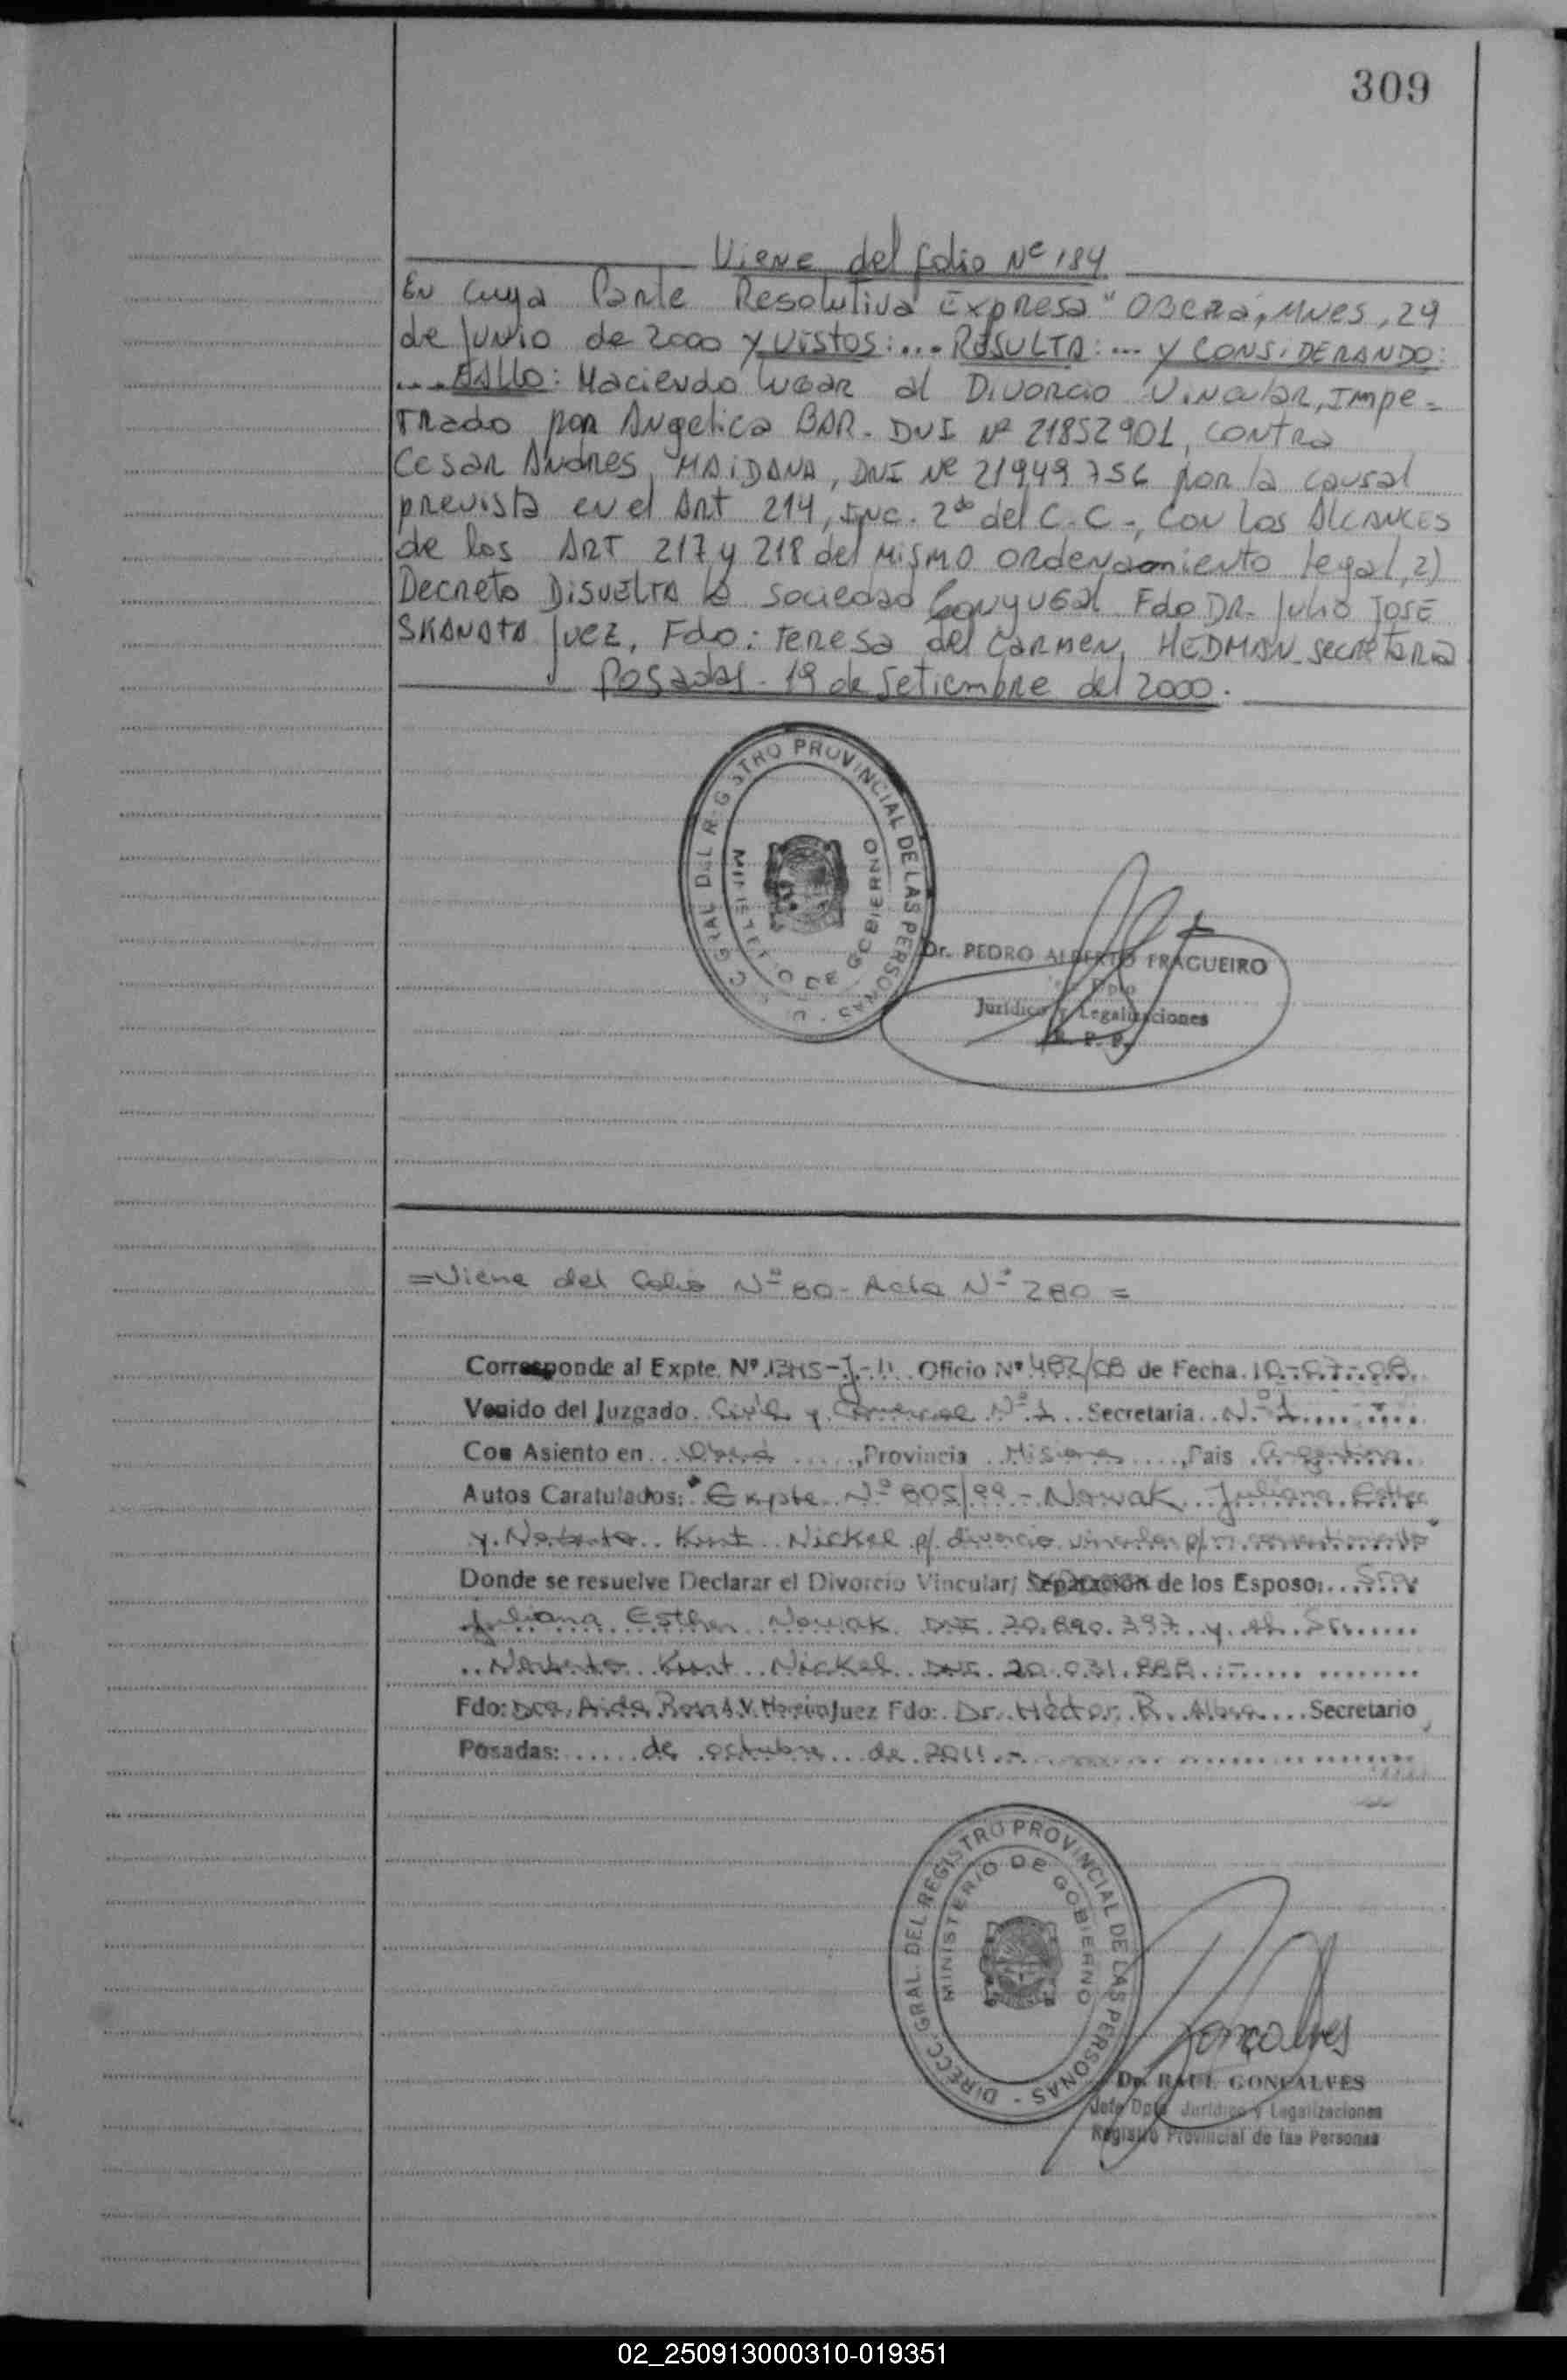 309
Viene del folio Nº 184
En cuya Parte Resolutiva Expresa "OBERÁ, MNES, 29
de Junio de 2000 Y VISTOS:... RESULTA:... Y CONSIDERANDO:
... FALLO: Haciendo lugar al Divorcio Vincular, Impe=
trado por Angelica BAR. DNI Nº 21852901, contra
Cesar Andres MAIDANA, DNI Nº 21949756 por la causal
prevista en el Art 214, inc. 2do del C.C-, con los ALCANCES
de los ART 217 y 218 del MISMO ordenamiento legal, 2)
Decreto DISUELTA la sociedad Conyugal Fdo DR. Julio JOSE
SKANATA Juez, Fdo: Teresa del CARMEN, HEDMAN Secretaria
Posadas - 19 de Setiembre del 2000.
C GRAL DEL REGISTRO PROVINCIAL DE LAS PERSONAS
MINISTERIO DE GOBIERNO
Dr. PEDRO ALBERTO FRAGUEIRO
Dpto
Jurídico y Legalizaciones
R. P. P.
=Viene del folio Nº 80 - Acta Nº 280 =
Corresponde al Expte. Nº 1345-J-11 Oficio Nº 482/08 de Fecha 10-07-08
Venido del Juzgado Civil y Comercial Nº 1 Secretaria Nº 1
Con Asiento en Oberá, Provincia Misiones, Pais Argentina.
Autos Caratulados: "Expte Nº 805/99 - Nowak Juliana Esther
y Norberto Kurt Nickel p/ divorcio vincular p/m. consentimiento"
Donde se resuelve Declarar el Divorcio Vincular/ Separación de los Esposo: Sra
Juliana Esther Nowak DNI 20.890.397 y el Sr
Norberto Kurt Nickel DNI 20.031.888
Fdo: Dra. Aida Rosa Juez Fdo: Dr. Héctor R. Secretario
Posadas: de octubre de 2011
DIRECC. GRAL. DEL REGISTRO PROVINCIAL DE LAS PERSONAS -
MINISTERIO DE GOBIERNO
Goncalves
Dr. RAUL GONCALVES
Jefe Dpto Jurídico y Legalizaciones
Registro Provincial de las Personas
02_250913000310-019351